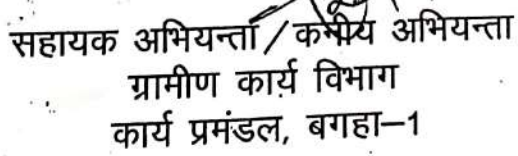 सहायक अभियन्ता / कनीय अभियन्ता
ग्रामीण कार्य विभाग
कार्य प्रमंडल, बगहा–1